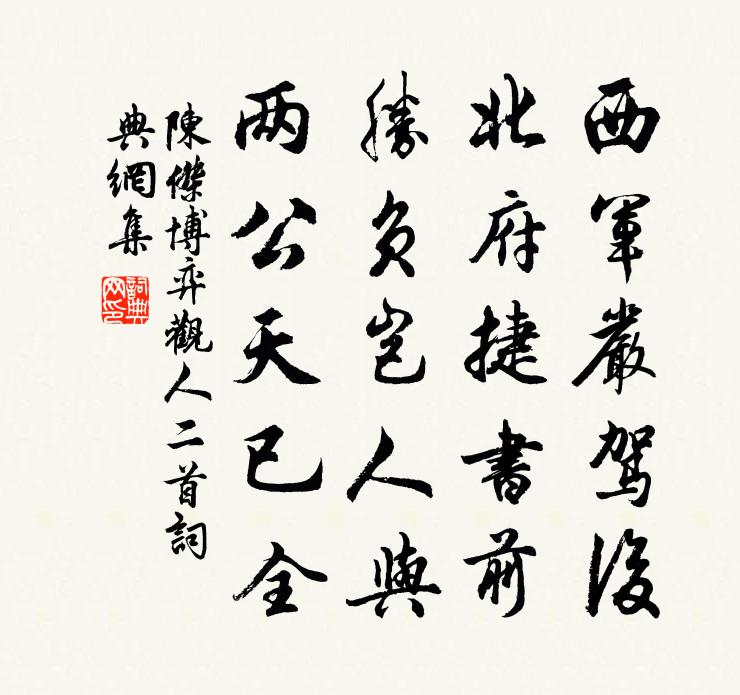 西軍嚴駕後
北府捷書前
勝負豈人與
兩公天已全
陳傑博弈觀人二首詞
典網集
詞典
网印